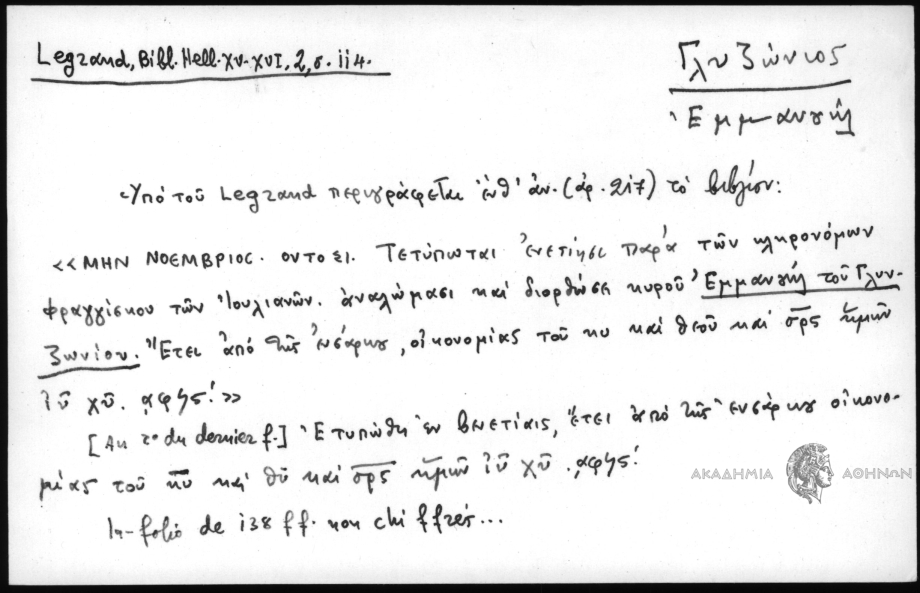 Legrand, Bibl. Hell. XV-XVI, 2, σ. 114.
Γλυζώνιος
Ἐμμανουήλ
Ὑπό τοῦ Legrand περιγράφεται ἐνθ' ἀν. (ἀρ. 217) τό βιβλίον:
«ΜΗΝ ΝΟΕΜΒΡΙΟΣ. οντος ι. Τετύπωται ἐνετίησι παρά τῶν κληρονόμων
Φραγγίσκου τῶν Ἰουλιανῶν. ἀναλώμασι καί διορθώσει κυροῦ Ἐμμανουήλ τοῦ Γλυν-
ζωνίου. Ἔτει ἀπό τῆς ἐνσάρκου, οἰκονομίας τοῦ κυ καί θεοῦ καί σρ̅ς ἡμῶν
ἰῦ χῦ. ͵αφϟϛ΄.»
[Au r° du dernier f.] Ἐτυπώθη ἐν Βενετίαις, ἔτει ἀπό τῆς ἐνσάρκου οἰκονο-
μίας τοῦ κ̅υ̅ καί θῦ καί σρ̅ς ἡμῶν ἰῦ χῦ. ͵αφϟϛ΄.
In-folio de 138 ff. non chiffrés...
ΑΚΑΔΗΜΙΑ ΑΘΗΝΩΝ